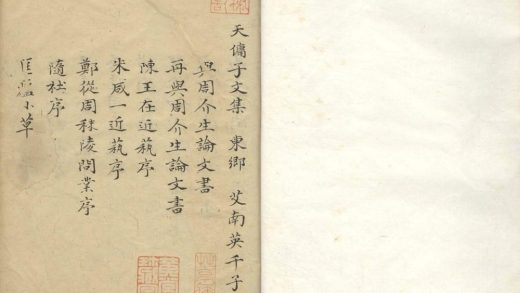 天傭子文集 東鄉 艾南英千子
與周介生論文書
再與周介生論文書
陳王在近蓺序
米咸一近蓺序
鄭從周秣陵問業序
隨社序
小草